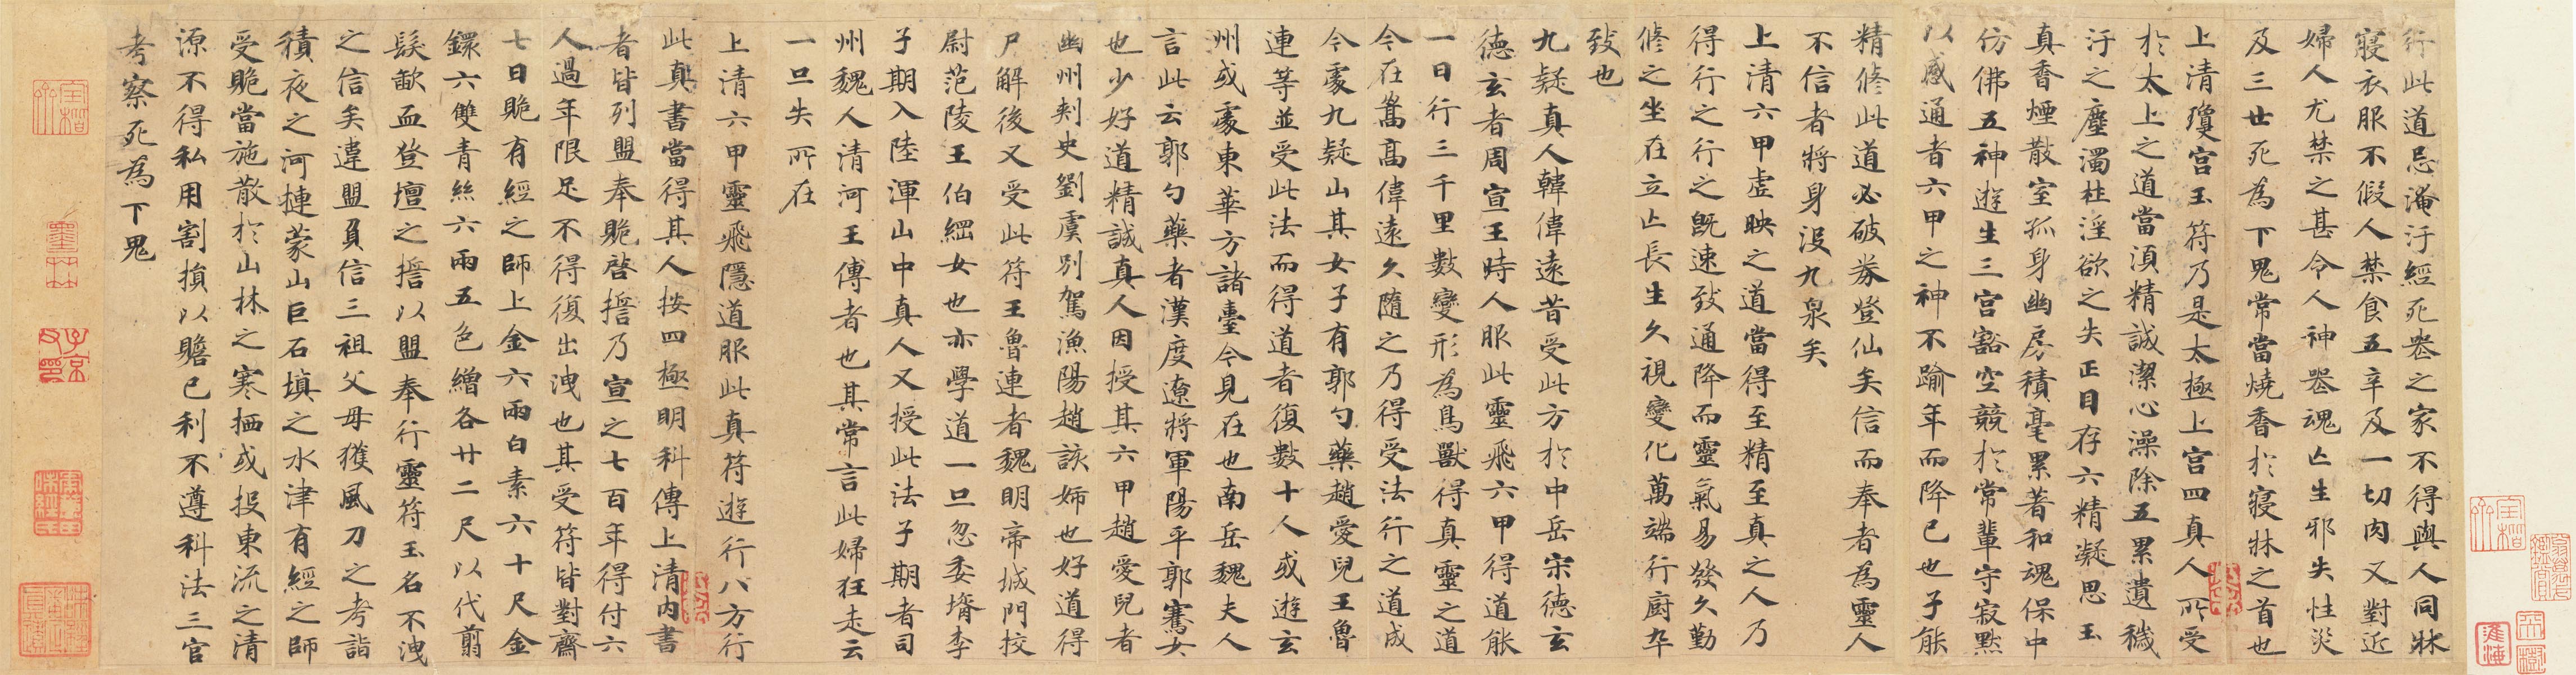 行此道忌淹汙經死喪之家不得與人同牀
寢衣服不假人禁食五辛及一切肉又對近
婦人尤禁之甚令人神喪魂亡生邪失性災
及三世死為下鬼常當燒香於寢牀之首也
上清瓊宮玉符乃是太極上宮四真人所受
於太上之道當須精誠潔心澡除五累遺穢
汙之塵濁杜淫欲之失正目存六精凝思玉
真香煙散室孤身幽房積毫累著和魂保中
仿佛五神遊生三宮豁空競於常輩守寂默
以感通者六甲之神不踰年而降已也子能
精修此道必破券登仙矣信而奉者為靈人
不信者將身沒九泉矣
上清六甲虛映之道當得至精至真之人乃
得行之行之既速致通降而靈氣易發久勤
修之坐在立亡長生久視變化萬端行廚卒
致也
九疑真人韓偉遠昔受此方於中岳宋德玄
德玄者周宣王時人服此靈飛六甲得道能
一日行三千里數變形為鳥獸得真靈之道
今在嵩高偉遠久隨之乃得受法行之道成
今處九疑山其女子有郭勺藥趙愛兒王魯
連等並受此法而得道者復數十人或遊玄
州或處東華方諸臺今見在也南岳魏夫人
言此云郭勺藥者漢度遼將軍陽平郭騫女
也少好道精誠真人因授其六甲趙愛兒者
幽州刺史劉虞別駕漁陽趙該姊也好道得
尸解後又受此符王魯連者魏明帝城門校
尉范陵王伯綱女也亦學道一旦忽委壻李
子期入陸渾山中真人又授此法子期者司
州魏人清河王傳者也其常言此婦狂走云
一旦失所在
上清六甲靈飛隱道服此真符遊行八方行
此真書當得其人按四極明科傳上清內書
者皆列盟奉贶啓誓乃宣之七百年得付六
人過年限足不得復出洩也其受符皆對齋
七日贶有經之師上金六兩白素六十尺金
鐶六雙青絲六兩五色繒各廿二尺以代翦
髮歃血登壇之誓以盟奉行靈符玉名不洩
之信矣違盟負信三祖父母獲風刀之考詣
積夜之河摙蒙山巨石塡之水津有經之師
受贶當施散於山林之寒栖或投東流之清
源不得私用割損以贍已利不遵科法三官
考察死為下鬼